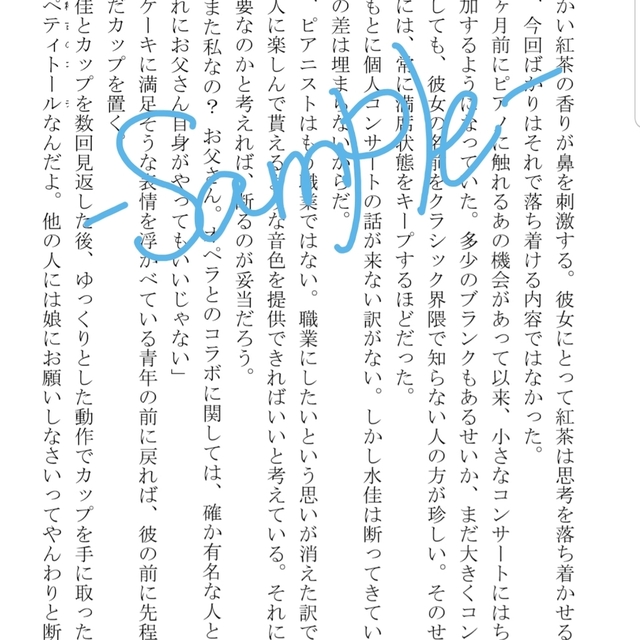 かい紅茶の香りが鼻を刺激する。彼女にとって紅茶は思考を落ち着かせる
、今回ばかりはそれで落ち着ける内容ではなかった。
ヶ月前にピアノに触れるあの機会があって以来、小さなコンサートにはち
加するようになっていた。多少のブランクもあるせいか、まだ大きくコン
しても、彼女の名前をクラシック界隈で知らない人の方が珍しい。そのせ
には、常に満席状態をキープするほどだった。
もとに個人コンサートの話が来ない訳がない。しかし水佳は断ってきてい
の差は埋まらないからだ。
、ピアニストはもう職業ではない。職業にしたいという思いが消えた訳で
人に楽しんで貰えるような音色を提供できればいいと考えている。それに
要なのかと考えれば、断るのが妥当だろう。
また私なの？ お父さん。オペラとのコラボに関しては、確か有名な人と
れにお父さん自身がやってもいいじゃない」
ケーキに満足そうな表情を浮かべている青年の前に戻れば、彼の前に先程
だカップを置く
佳とカップを数回見返した後、ゆっくりとした動作でカップを手に取った
ペティトールなんだよ。他の人には娘にお願いしなさいってやんわりと断
-Sample-